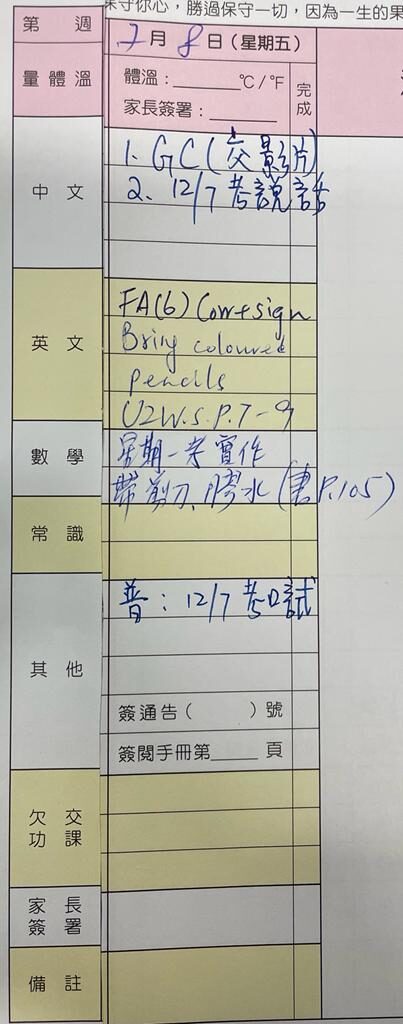 保守你心，勝過保守一切，因為一生的果
第 週
7月8日(星期五)
量體溫
體溫：______℃/℉
家長簽署：______
完成
中文
1. GC(交影片)
2. 12/7 考說話
英文
FA(6) Corr+sign
Bring coloured
pencils
U2W.S.P.7-9
數學
星期一考實作
帶剪刀、膠水(書P.105)
常識
其他
普：12/7 考口試
簽通告(　　)號
簽閱手冊第____頁
欠交功課
家長簽署
備註